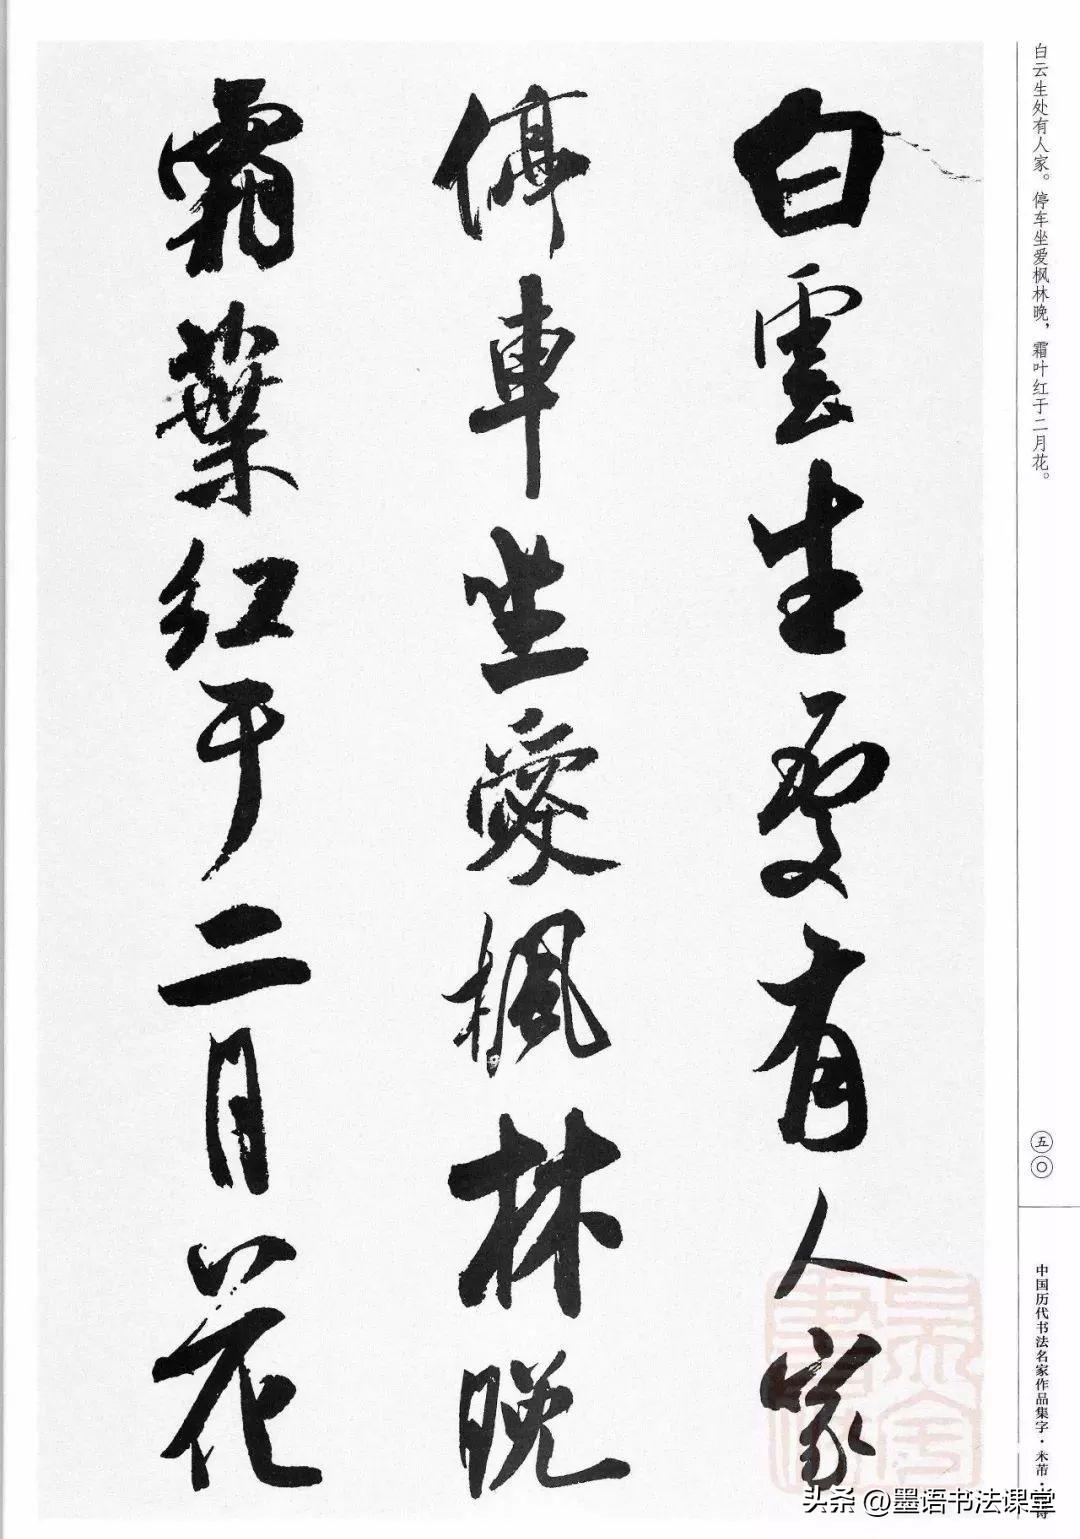 白雲生處有人家
停車坐愛楓林晚
霜葉红于二月花
白云生处有人家。停车坐爱枫林晚，霜叶红于二月花。
五〇
中国历代书法名家作品集字·米芾·
头条 @墨语书法课堂